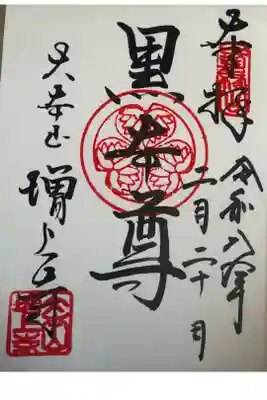 奉拝
令和八年
二月二十日
黒本尊
大本山 増上寺